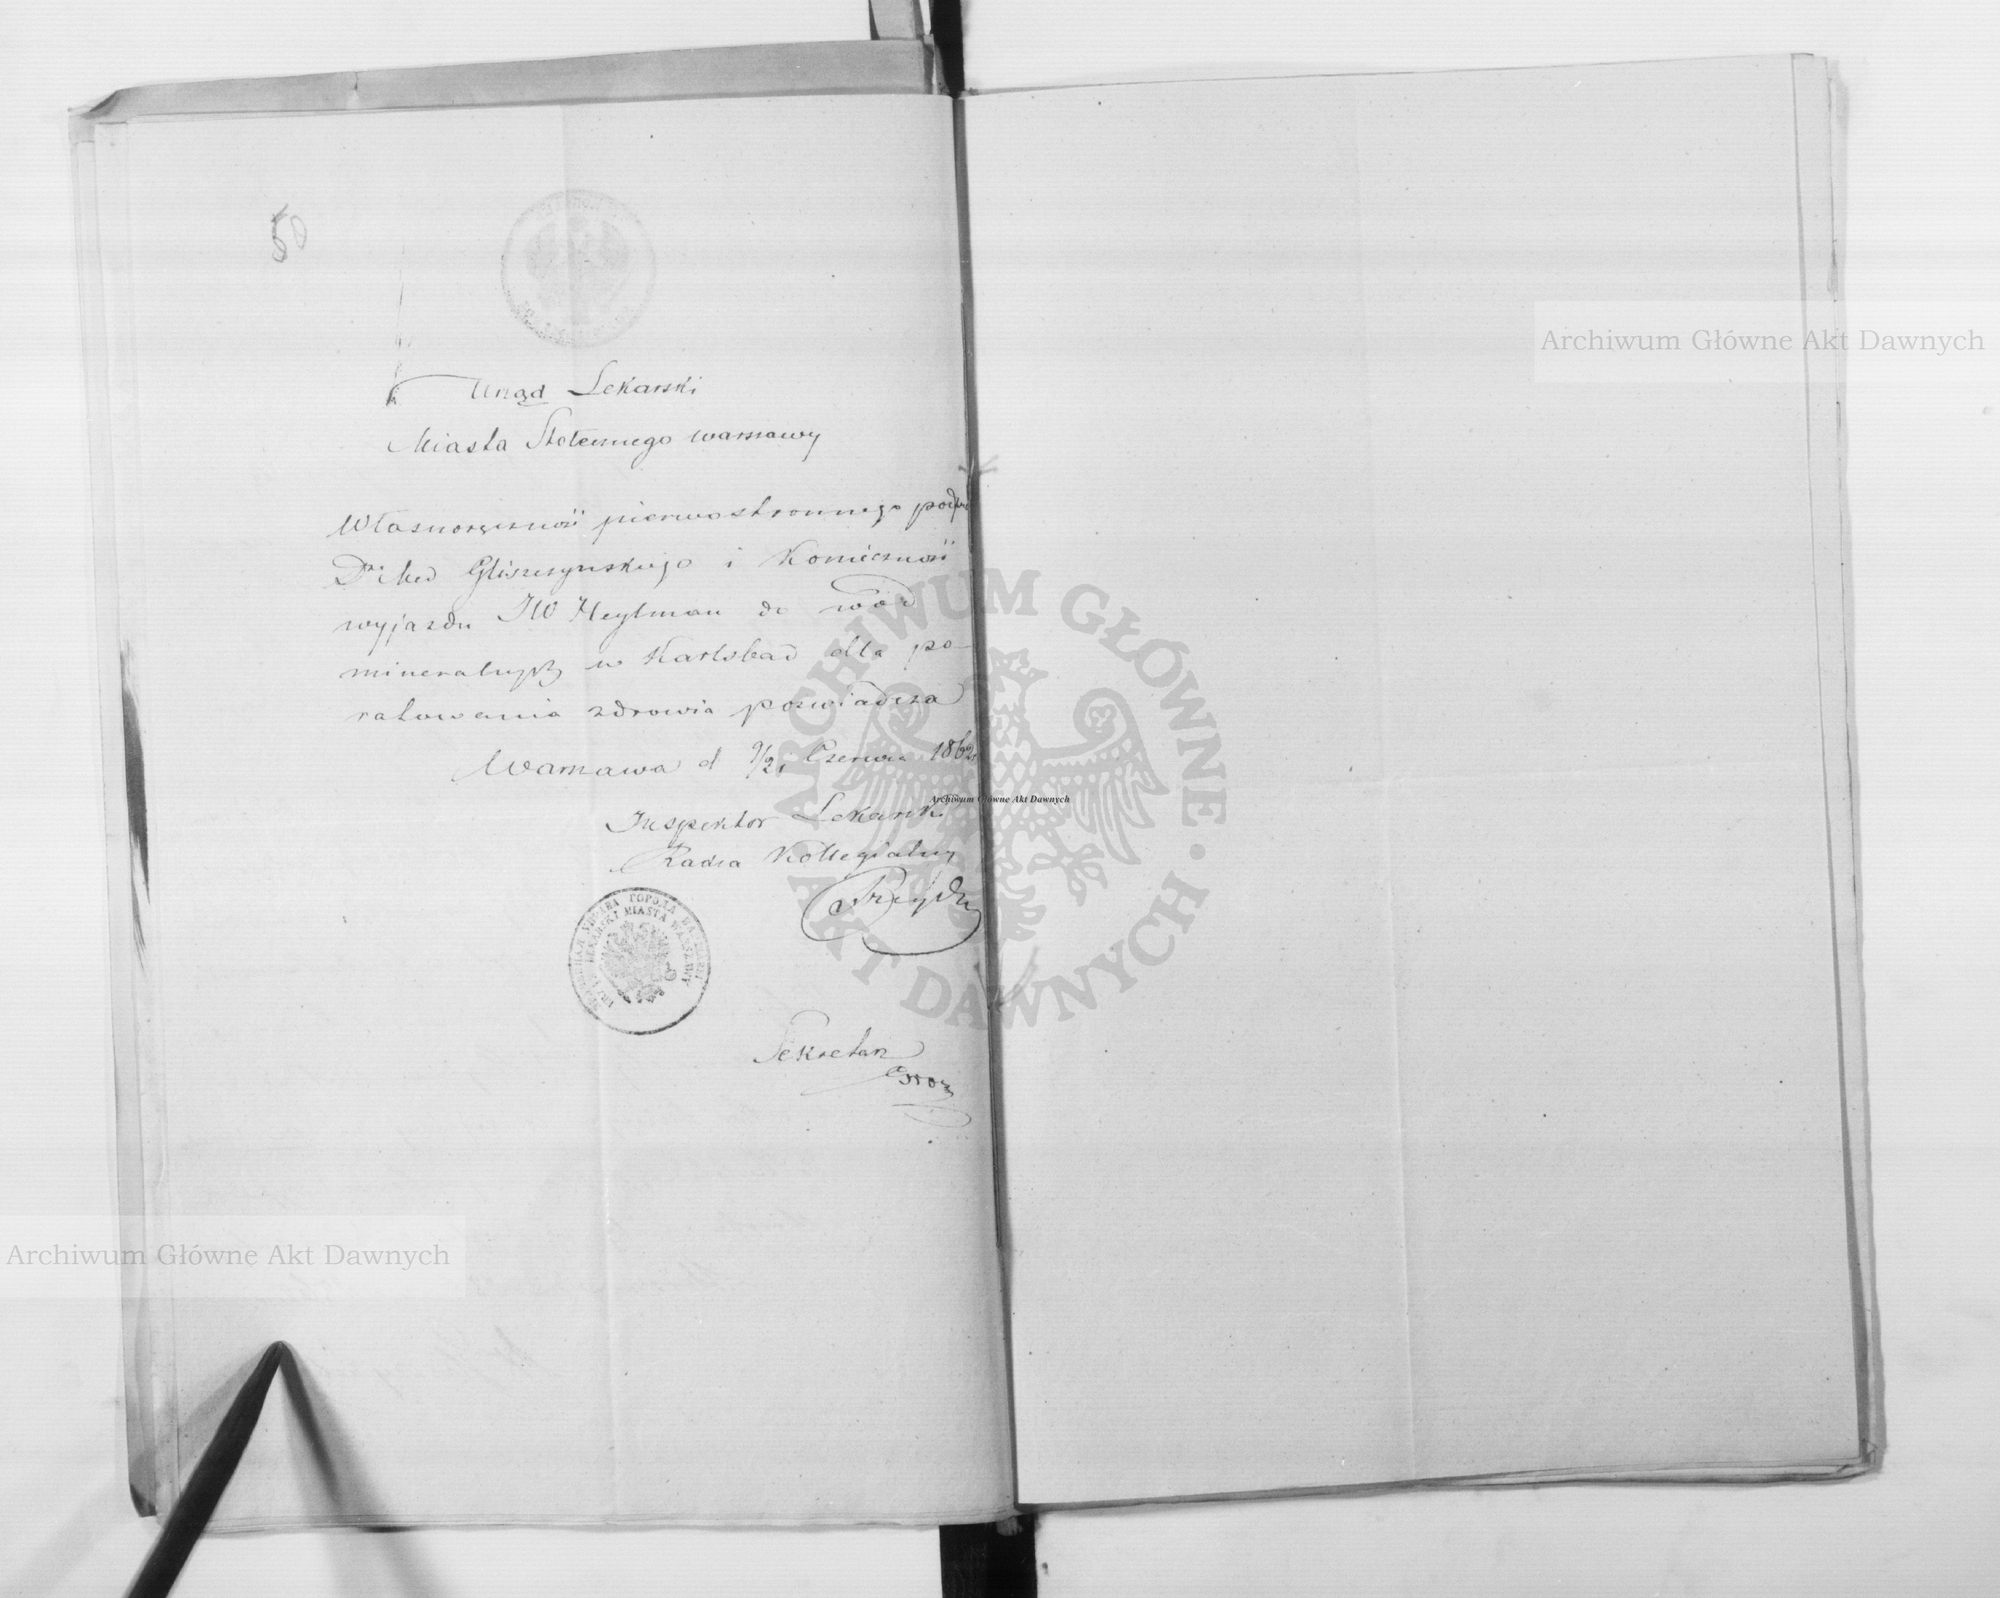 50
Urząd Lekarski
Miasta Stołecznego Warszawy
Własnoręczność pierwostronnego podpisu
Dra Med Gliszczynskiego i Konieczność
wyjazdu JW Heylman do wód
mineralnych w Karlsbad dla po-
ratowania zdrowia poswiadcza
Warszawa d 9/21 Czerwca 1862
Inspektor Lekarski
Radca Kollegialny
УПРАВА ГОРОДА ВАРШАВЫ
URZĄD LEKARSKI MIASTA WARSZAWY
Sekretarz
Archiwum Główne Akt Dawnych
Archiwum Główne Akt Dawnych
Archiwum Główne Akt Dawnych
ARCHIWUM GŁÓWNE AKT DAWNYCH